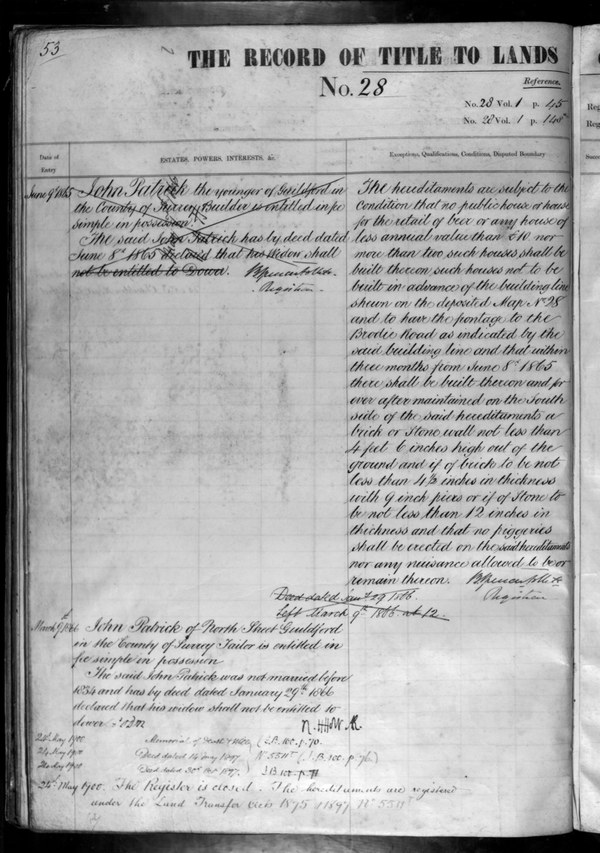 53
THE RECORD OF TITLE TO LANDS
No. 28
Reference.
No. 28 Vol. 1 p. 45
No. 28 Vol. 1 p. 148
Date of
Entry
ESTATES, POWERS, INTERESTS, &c.
Exceptions, Qualifications, Conditions, Disputed Boundary
June 9th 1865
John Patrick the younger of Guildford in
the County of Surrey Builder is entitled in fee
simple in possession.
The said John Patrick has by deed dated
June 8th 1865 declared that his Widow shall
not be entitled to Dower.
Registrar
The hereditaments are subject to the
condition that no public house or house
for the retail of beer or any house of
less annual value than £10 nor
more than two such houses shall be
built thereon such houses not to be
built in advance of the building line
shewn on the deposited Map No 28
and to have the frontage to the
Brodie Road as indicated by the
said building line and that within
three months from June 8th 1865
there shall be built thereon and for
ever after maintained on the South
side of the said hereditaments a
brick or Stone wall not less than
4 feet 6 inches high out of the
ground and if of brick to be not
less than 4½ inches in thickness
with 9 inch piers or if of Stone to
be not less than 12 inches in
thickness and that no piggeries
shall be erected on the said hereditaments
nor any nuisance allowed to be or
remain thereon.
Registrar
Deed dated Jany 29 1866.
Left March 9th 1866 at 12.
March 9th 1866
John Patrick of North Street Guildford
in the County of Surrey Tailor is entitled in
fee simple in possession
The said John Patrick was not married before
1834 and has by deed dated January 29th 1866
declared that his widow shall not be entitled to
dower
24th May 1900 Memorial of
24 May 1900 Deed dated 14 May 1897
24 May 1900 Deed dated 30th 1897
24th May 1900. The Register is closed. The hereditaments are registered
under the Land Transfer Acts 1875 & 1897